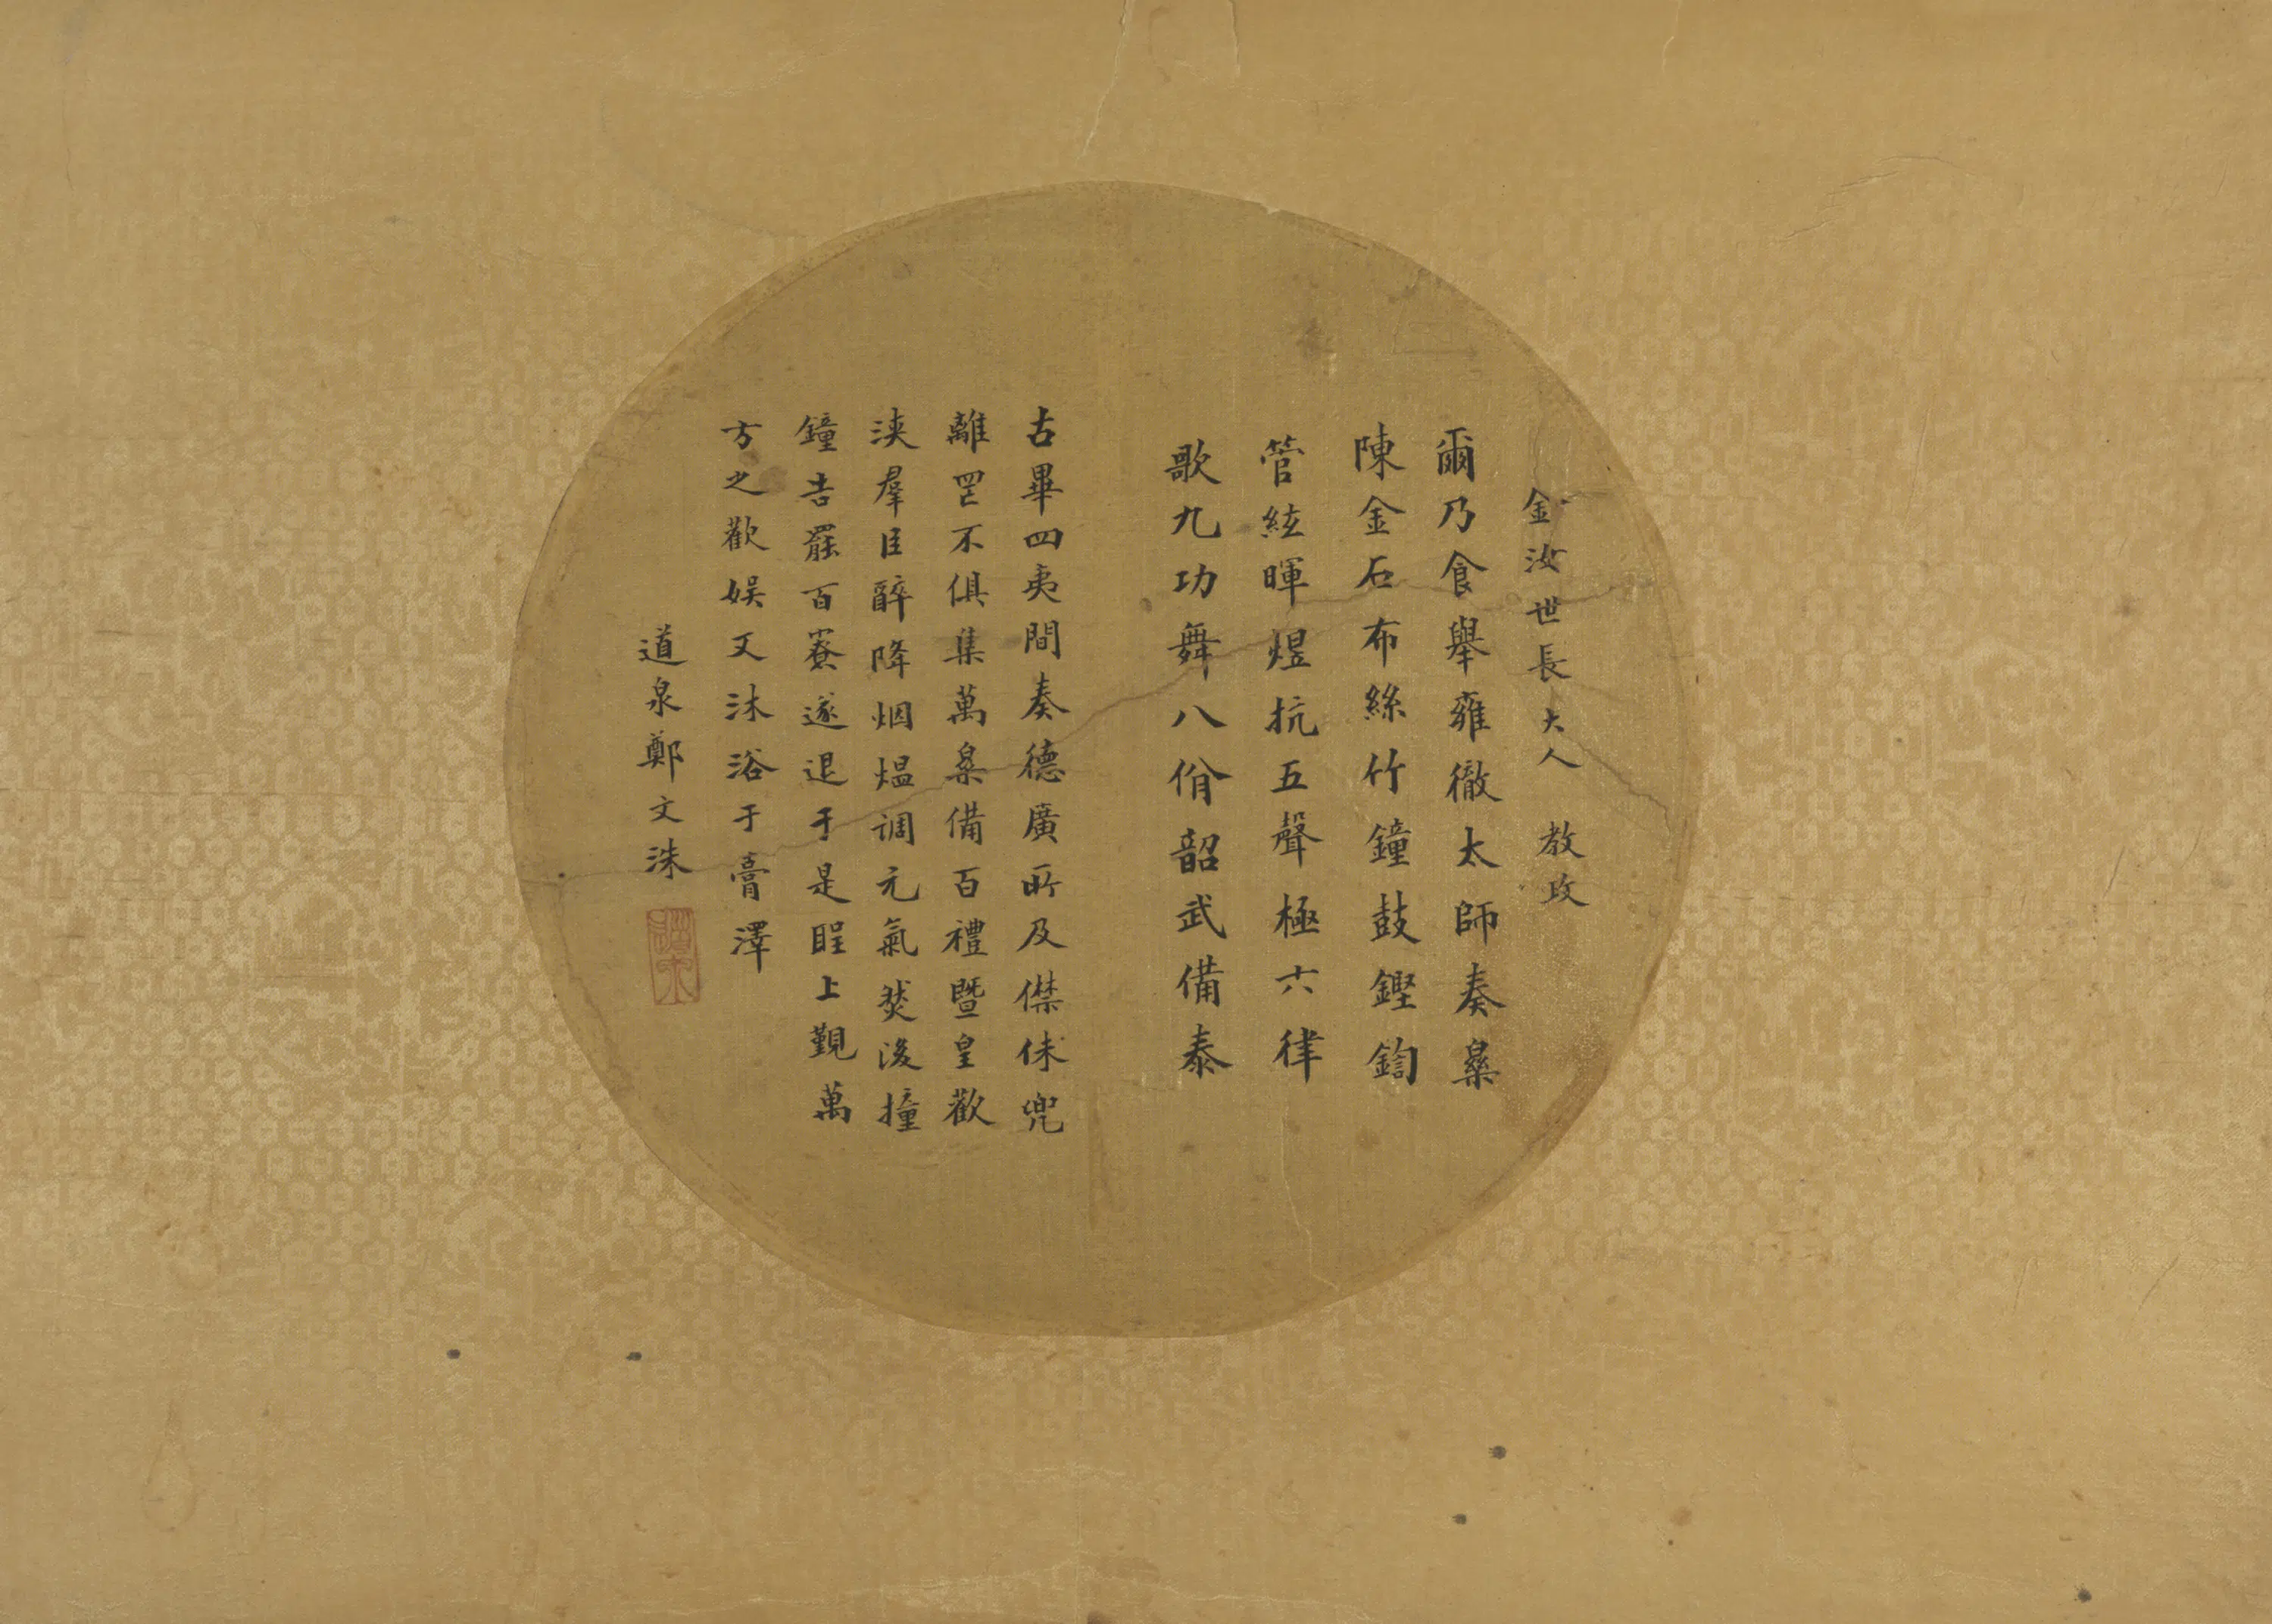 金汝世長大人 教政
爾乃食舉雍徹太師奏樂
陳金石布絲竹鐘鼓鏗鍧
管絃曄煜抗五聲極六律
歌九功舞八佾韶武備泰
古畢四夷間奏德廣所及僸佅兜
離罔不俱集萬樂備百禮暨皇歡
浹群臣醉降烟熅調元氣然後撞
鐘告罷百寮遂退于是睲上覲萬
方之歡娛又沐浴于膏澤
道泉鄭文洙